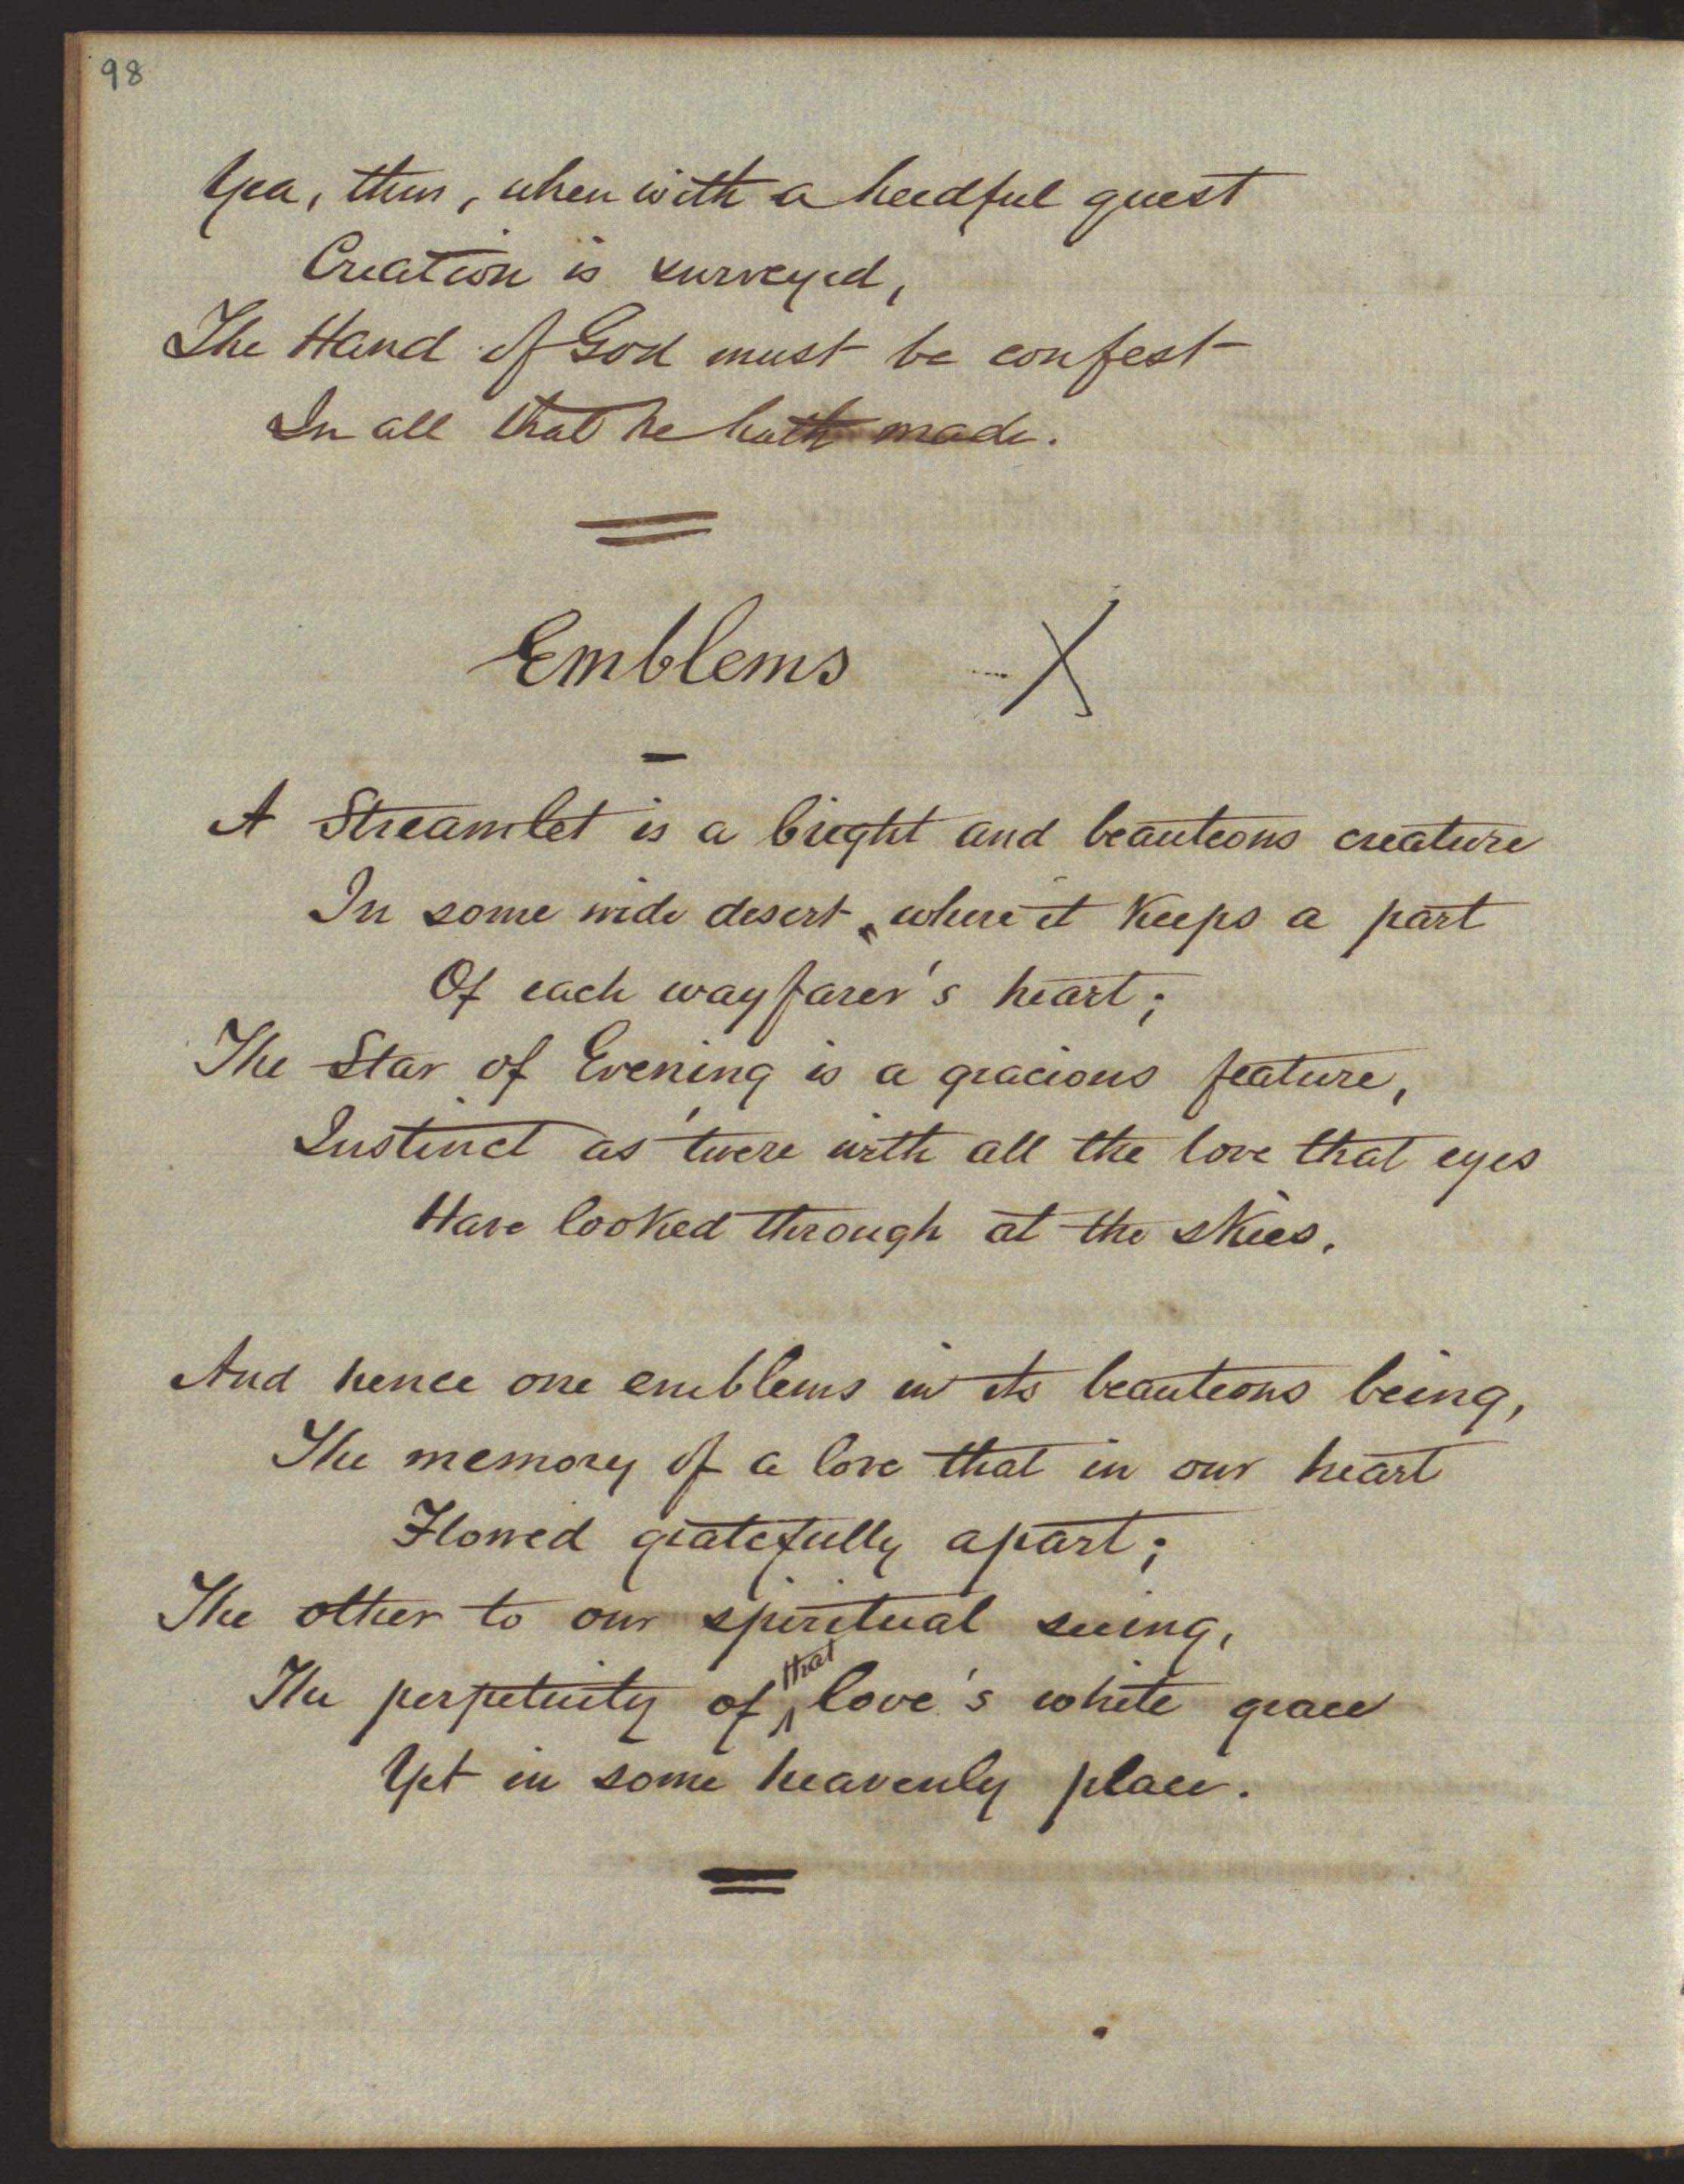 98
Yea, thus, when with a heedful quest
Creation is surveyed,
The Hand of God must be confest
In all that he hath made.
Emblems X
A Streamlet is a bright and beauteous creature
In some wide desert, where it keeps a part
Of each wayfarer's heart;
The Star of Evening is a gracious feature,
Instinct as 'twere with all the love that eyes
Have looked through at the skies.
And hence one emblems in its beauteous being,
The memory of a love that in our heart
Flowed gratefully apart;
The other to our spiritual seeing,
The perpetuity of that love's white grace
Yet in some heavenly place.